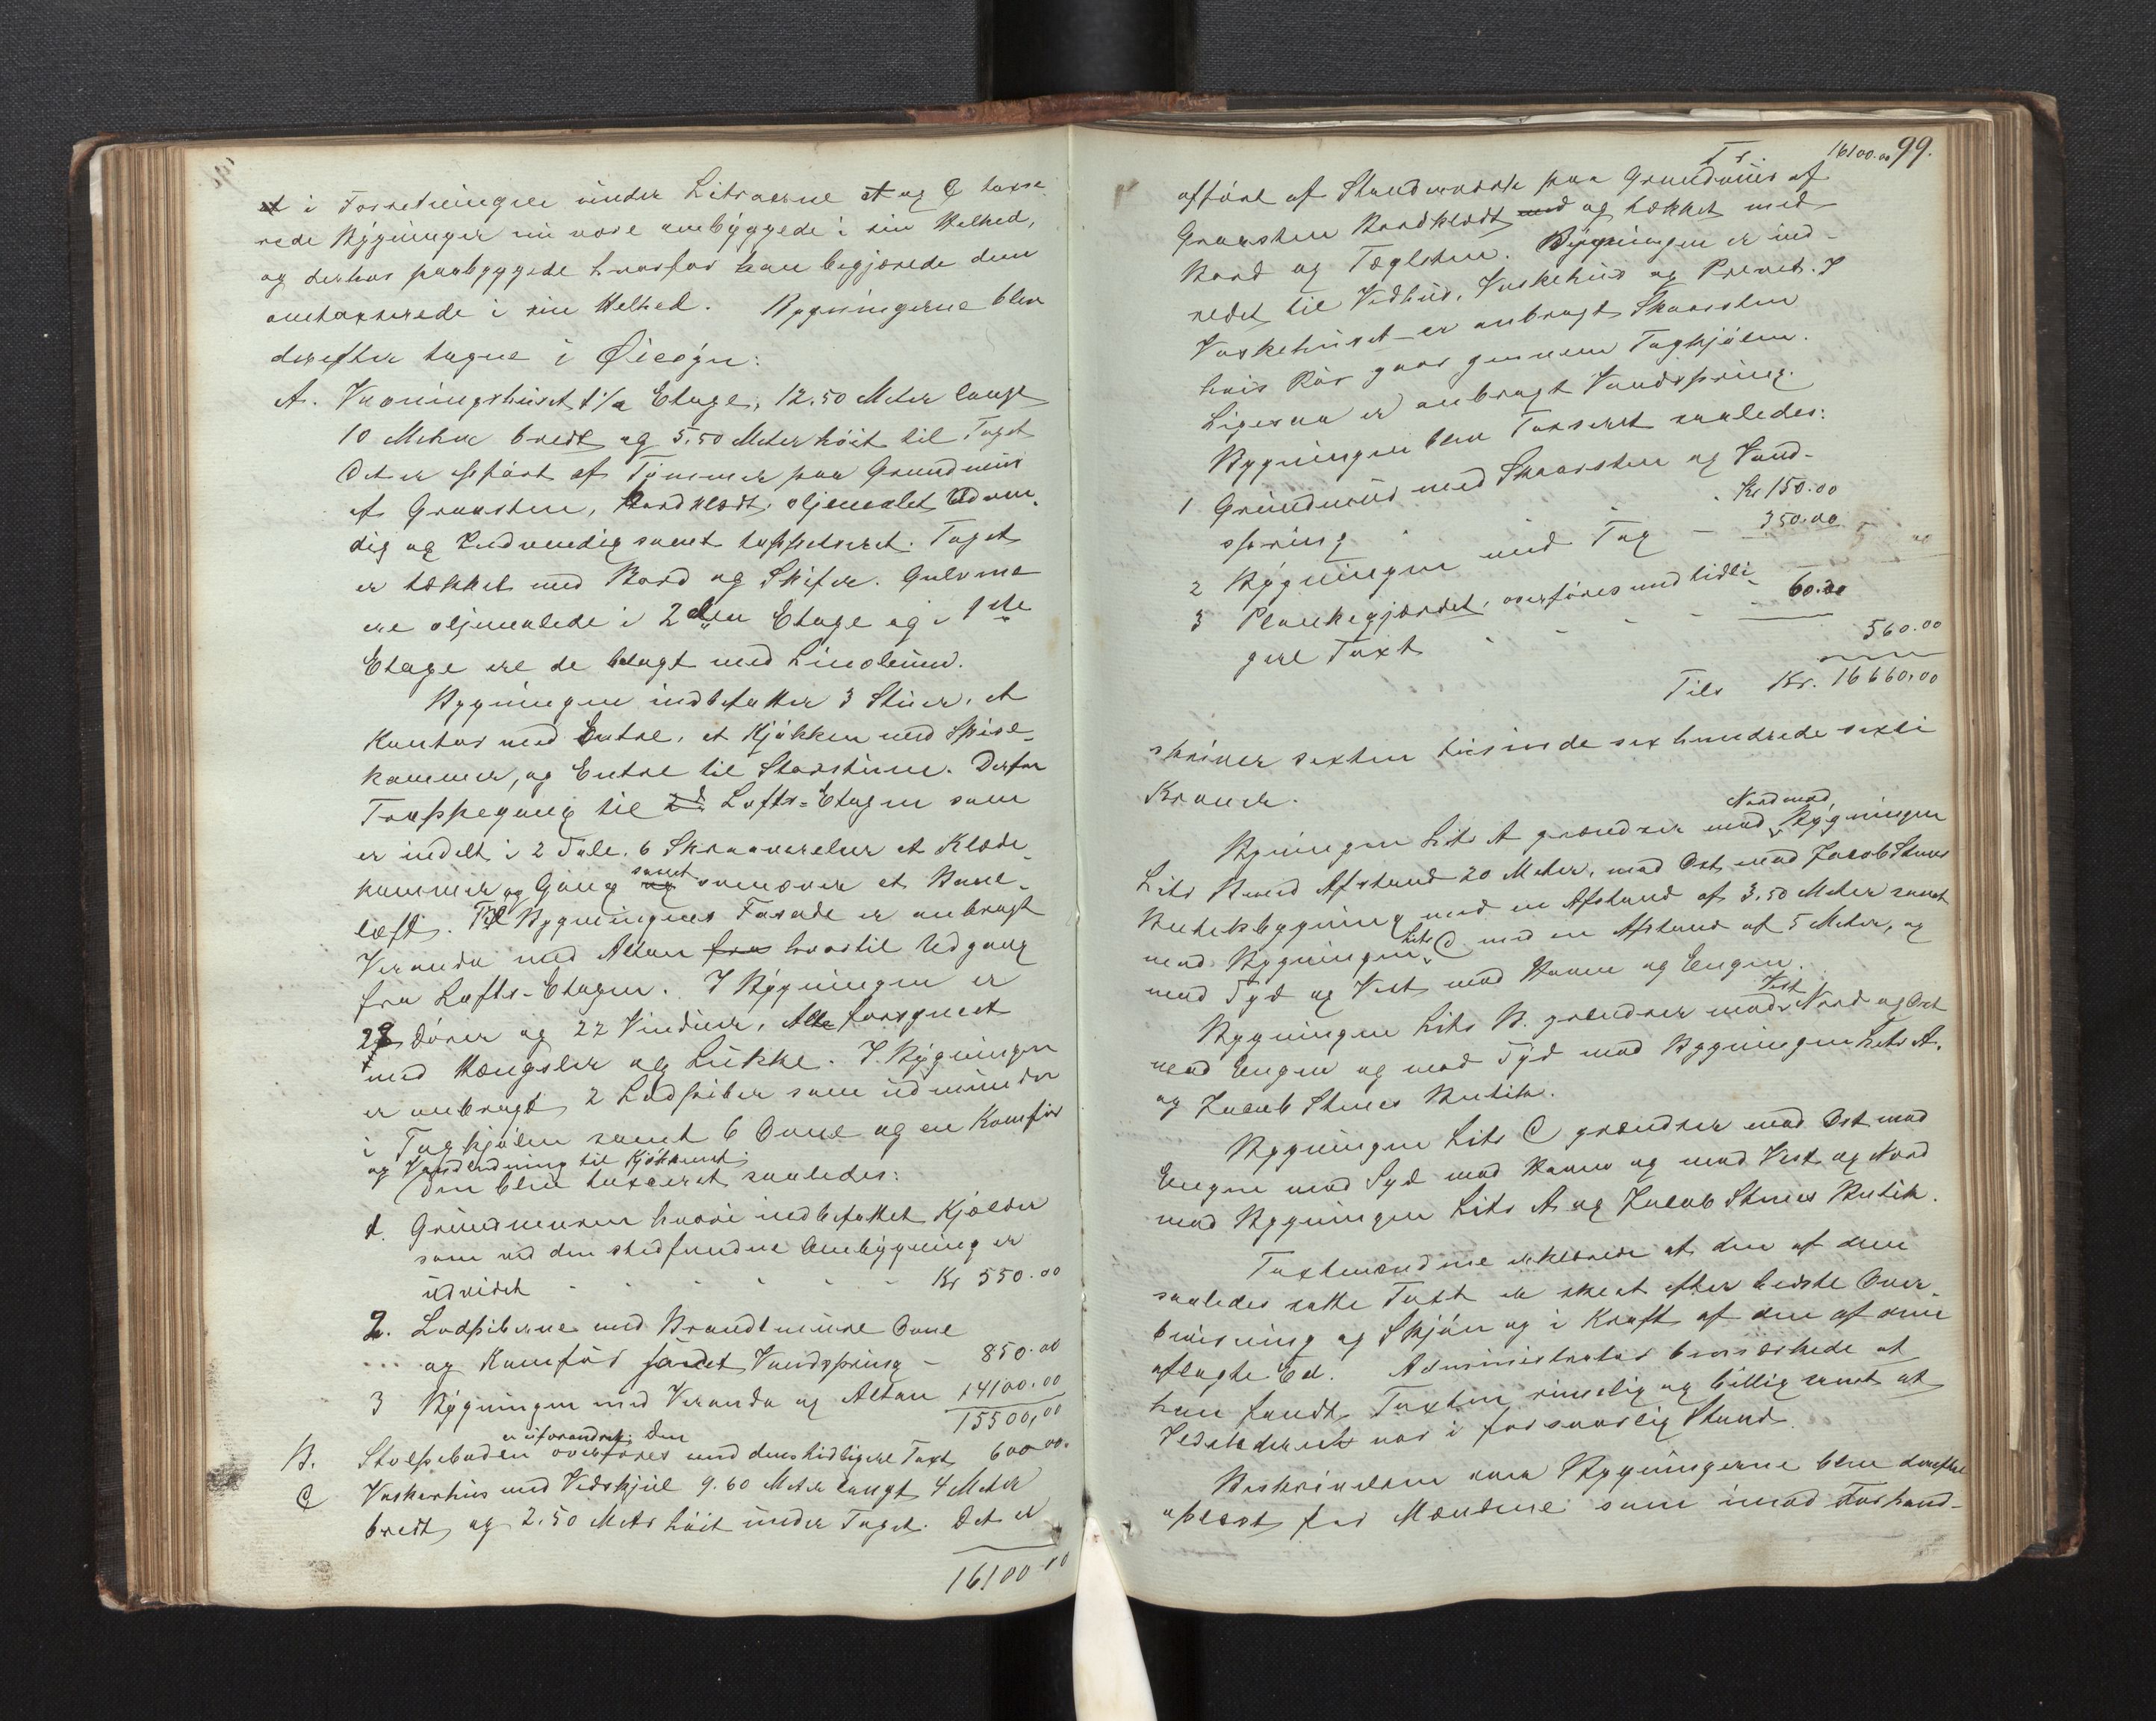 at i Forretningen under Litraerne A og C taxe-
rede Bygninger nu vare ombyggede i sin Helhed,
og derhos paabyggede hvorfor han begjærede dem
omtaxserede i sin Helhed. Bygningerne blev
derefter tagne i Øiesyn:
A. Vaaningshuset 1 1/2 Etage, 12.50 Meter langt
10 Metre bredt og 5,50 Meter höit til Taget
Det er opført af Tømmer paa Grundmur
af Graasten, bordklædt, oljemalet Udven-
dig og Indvendig samt tappetseret. Taget
er tækket med Bord og Skifer. Gulvene
ere oljemalede i 2den Etage og i 1ste
Etage ere de belagt med Linoleum.
Bygningen indbefatter 3 Stuer, et
Kontor med Entre, et Kjøkken med Spise-
kammer, og Entre til Storstuen. Derfra
Trappegang til 2d Lofts-Etagen som
er indelt i 2 Sale, 6 Skraaværelser et Klæde-
kammer og Gang og samt ovenover et Bane-
loft. Til Bygningens Fasade er anbragt
Veranda med Altan fra hvortil Udgang
fra Lofts-Etagen. I Bygningen er
28 Dörer og 22 Vinduer, Alle forsynet
med Hængsler og Lukke. I Bygningen
er anbragt 2 Lodpiber som udmunder
i Taghjølen samt 6 Ovne og en Komfur
og Vandledning til Kjøkkenet
Den blev taxseret saaledes:
1. Grundmuren hvori indbefattet Kjælder
som ved den stedfundne Ombygning er
udvidet - - - - - - Kr 550.00
2. Lodpiberne med Brandtmure Ovne
og Komfur samt Vandspring - 850.00
3 Bygningen med Veranda og Altan 14100.00
15500,00
er uforandret. Den
B. Stolpeboden overföres med dens tidligere Taxt 600.00.
C Vaskerhus med Vedskjul 9.60 Meter langt 4 Meter
bredt, og 2.50 Meter höit under Taget. Det er
16100.00
99.
Tr. 16100.00
opført af Stenderværk paa Grundmur af
Graasten Bordklædt med og tækket med
Bord og Taglsten. Bygningen er ind-
redet til Vedhus, Vaskehus og Privet. I
Vaskehuset er anbragt Skorsten
hvis Rör gaar gennem Taghjølen.
Ligesaa er anbragt Vandspring.
Bygningen blev Taxseret saaledes:
1 Grundmur med Skorsten og Vand-
spring - . Kr 150.00
2 Bygningen med Tag - 350.00
3 Plankegjærdet, overföres med tidli-
gere Taxt - - - - 60.00
560.00
Tils Kr. 16660,00
skriver sexten tusinde sex hundrede sexti
Kroner.
Nord mod
Bygningen Litr A grændser mod Bygningen
Litr B med Afstand 20 Meter, mod Ost mod Jacob Stenes
Butiksbygning med en Afstand af 3.50 Meter samt
mod Bygningen Litr C med en Afstand af 5 Meter, og
mod Syd og Vest mod Haven og Engen.
Bygningen Litr B. grændser mod Vest Nord og Ost
mod Engen og mod Syd mod Bygningen Litr A.
og Jacob Stenes Butik.
Bygningen Litr C grændser mod Ost mod
Engen mod Syd mod Haven og mod Vest og Nord
mod Bygningen Litr A og Jacob Stenes Butik.
Taxtmændene erklærede at den af dem
saaledes satte Taxt er skeet efter bedste Over-
bevisning og Skjøn og i Kraft af den af dem
aflagte Ed. Administrator bemærkede at
han fandt Taxten rimelig og billig samt at
Ildstederne var i forsvarlig Stand.
Beskrivelsen over Bygningerne blev derefter
oplæst for Mændene som imod Forhand-